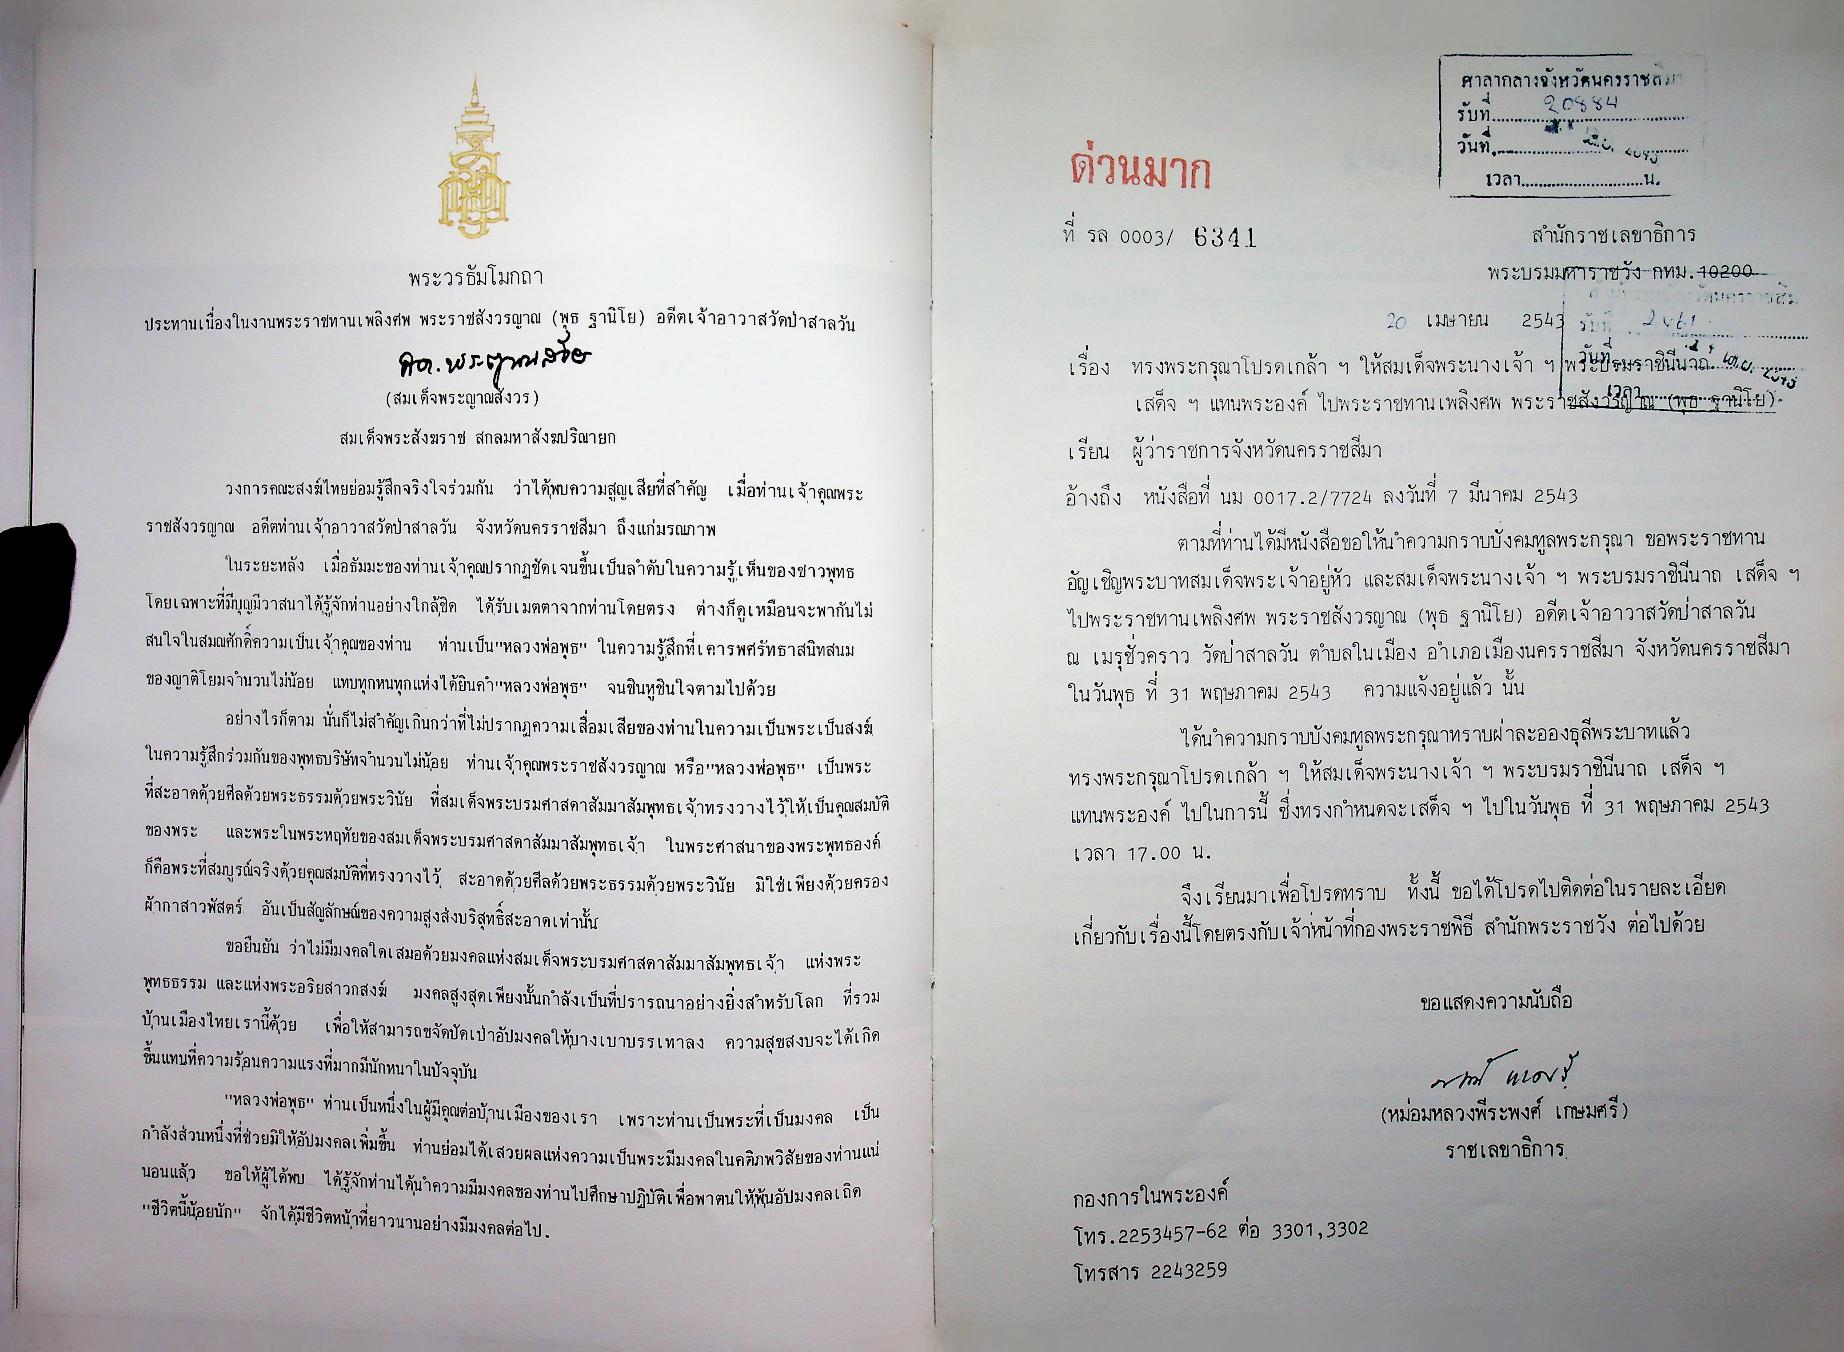 พระวรธัมโมกถา
ประทานเนื่องในงานพระราชทานเพลิงศพ พระราชสังวรญาณ (พุธ ฐานิโย) อดีตเจ้าอาวาสวัดป่าสาลวัน
(สมเด็จพระญาณสังวร)
สมเด็จพระสังฆราช สกลมหาสังฆปริณายก
วงการคณะสงฆ์ไทยย่อมรู้สึกจริงใจร่วมกัน ว่าได้พบความสูญเสียที่สำคัญ เมื่อท่านเจ้าคุณพระ
ราชสังวรญาณ อดีตท่านเจ้าอาวาสวัดป่าสาลวัน จังหวัดนครราชสีมา ถึงแก่มรณภาพ
ในระยะหลัง เมื่อธัมมะของท่านเจ้าคุณปรากฏชัดเจนขึ้นเป็นลำดับในความรู้เห็นของชาวพุทธ
โดยเฉพาะที่มีบุญมีวาสนาได้รู้จักท่านอย่างใกล้ชิด ได้รับเมตตาจากท่านโดยตรง ต่างก็ดูเหมือนจะพากันไม่
สนใจในสมณศักดิ์ความเป็นเจ้าคุณของท่าน ท่านเป็น"หลวงพ่อพุธ" ในความรู้สึกที่เคารพศรัทธาสนิทสนม
ของญาติโยมจำนวนไม่น้อย แทบทุกหนทุกแห่งได้ยินคำ"หลวงพ่อพุธ" จนชินหูชินใจตามไปด้วย
อย่างไรก็ตาม นั่นก็ไม่สำคัญเกินกว่าที่ไม่ปรากฏความเสื่อมเสียของท่านในความเป็นพระเป็นสงฆ์
ในความรู้สึกร่วมกันของพุทธบริษัทจำนวนไม่น้อย ท่านเจ้าคุณพระราชสังวรญาณ หรือ"หลวงพ่อพุธ" เป็นพระ
ที่สะอาดด้วยศีลด้วยพระธรรมด้วยพระวินัย ที่สมเด็จพระบรมศาสดาสัมมาสัมพุทธเจ้าทรงวางไว้ให้เป็นคุณสมบัติ
ของพระ และพระในพระหฤทัยของสมเด็จพระบรมศาสดาสัมมาสัมพุทธเจ้า ในพระศาสนาของพระพุทธองค์
ก็คือพระที่สมบูรณ์จริงด้วยคุณสมบัติที่ทรงวางไว้ สะอาดด้วยศีลด้วยพระธรรมด้วยพระวินัย มิใช่เพียงด้วยครอง
ผ้ากาสาวพัสตร์ อันเป็นสัญลักษณ์ของความสูงส่งบริสุทธิ์สะอาดเท่านั้น
ขอยืนยัน ว่าไม่มีมงคลใดเสมอด้วยมงคลแห่งสมเด็จพระบรมศาสดาสัมมาสัมพุทธเจ้า แห่งพระ
พุทธธรรม และแห่งพระอริยสาวกสงฆ์ มงคลสูงสุดเพียงนั้นกำลังเป็นที่ปรารถนาอย่างยิ่งสำหรับโลก ที่รวม
บ้านเมืองไทยเรานี้ด้วย เพื่อให้สามารถขจัดปัดเป่าอัปมงคลให้บางเบาบรรเทาลง ความสุขสงบจะได้เกิด
ขึ้นแทนที่ความร้อนความแรงที่มากมีนักหนาในปัจจุบัน
"หลวงพ่อพุธ" ท่านเป็นหนึ่งในผู้มีคุณต่อบ้านเมืองของเรา เพราะท่านเป็นพระที่เป็นมงคล เป็น
กำลังส่วนหนึ่งที่ช่วยมิให้อัปมงคลเพิ่มขึ้น ท่านย่อมได้เสวยผลแห่งความเป็นพระมีมงคลในคติภพวิสัยของท่านแน่
นอนแล้ว ขอให้ผู้ได้พบ ได้รู้จักท่านได้นำความมีมงคลของท่านไปศึกษาปฏิบัติเพื่อพาตนให้พ้นอัปมงคลเถิด
"ชีวิตนี้น้อยนัก" จักได้มีชีวิตหน้าที่ยาวนานอย่างมีมงคลต่อไป.
ศาลากลางจังหวัดนครราชสีมา
รับที่ 20884
วันที่
เวลา น.
ด่วนมาก
ที่ รล 0003/ 6341
สำนักราชเลขาธิการ
พระบรมมหาราชวัง กทม. 10200
20 เมษายน 2543
รับที่
วันที่
เวลา
เรื่อง ทรงพระกรุณาโปรดเกล้า ฯ ให้สมเด็จพระนางเจ้า ฯ พระบรมราชินีนาถ
เสด็จ ฯ แทนพระองค์ ไปพระราชทานเพลิงศพ พระราชสังวรญาณ (พุธ ฐานิโย)
เรียน ผู้ว่าราชการจังหวัดนครราชสีมา
อ้างถึง หนังสือที่ นม 0017.2/7724 ลงวันที่ 7 มีนาคม 2543
ตามที่ท่านได้มีหนังสือขอให้นำความกราบบังคมทูลพระกรุณา ขอพระราชทาน
อัญเชิญพระบาทสมเด็จพระเจ้าอยู่หัว และสมเด็จพระนางเจ้า ฯ พระบรมราชินีนาถ เสด็จ ฯ
ไปพระราชทานเพลิงศพ พระราชสังวรญาณ (พุธ ฐานิโย) อดีตเจ้าอาวาสวัดป่าสาลวัน
ณ เมรุชั่วคราว วัดป่าสาลวัน ตำบลในเมือง อำเภอเมืองนครราชสีมา จังหวัดนครราชสีมา
ในวันพุธ ที่ 31 พฤษภาคม 2543 ความแจ้งอยู่แล้ว นั้น
ได้นำความกราบบังคมทูลพระกรุณาทราบฝ่าละอองธุลีพระบาทแล้ว
ทรงพระกรุณาโปรดเกล้า ฯ ให้สมเด็จพระนางเจ้า ฯ พระบรมราชินีนาถ เสด็จ ฯ
แทนพระองค์ ไปในการนี้ ซึ่งทรงกำหนดจะเสด็จ ฯ ไปในวันพุธ ที่ 31 พฤษภาคม 2543
เวลา 17.00 น.
จึงเรียนมาเพื่อโปรดทราบ ทั้งนี้ ขอได้โปรดไปติดต่อในรายละเอียด
เกี่ยวกับเรื่องนี้โดยตรงกับเจ้าหน้าที่กองพระราชพิธี สำนักพระราชวัง ต่อไปด้วย
ขอแสดงความนับถือ
(หม่อมหลวงพีระพงศ์ เกษมศรี)
ราชเลขาธิการ
กองการในพระองค์
โทร.2253457-62 ต่อ 3301,3302
โทรสาร 2243259